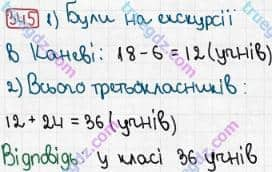 345 1) Були на екскурсії
в Каневі: 18-6=12 (учнів)
2) Всього третьокласників:
12+24=36 (учнів)
Відповідь у класі 36 учнів